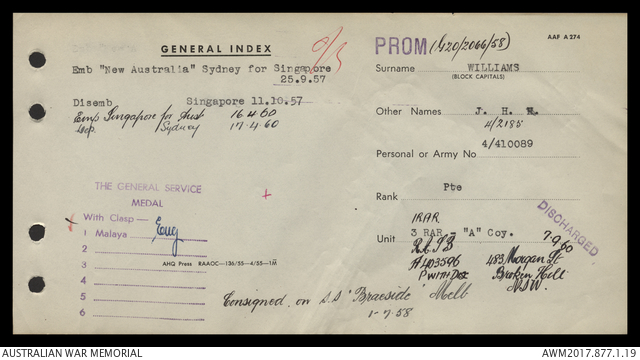 GENERAL INDEX
Emb "New Australia" Sydney for Singapore
25.9.57
Disemb Singapore 11.10.57
Emb Singapore for Aust 16.4.60
Sydney 17.4.60
THE GENERAL SERVICE
MEDAL
With Clasp —
1 Malaya
2
3
4
5
6
AHQ Press RAAOC—136/55—4/55—1M
PROM (420/2066/58)
AAF A 274
Surname WILLIAMS
(BLOCK CAPITALS)
Other Names J. H.
4/2185
Personal or Army No 4/410089
Rank Pte
1RAR
Unit 3 RAR - "A" Coy.
DISCHARGED
7.9.60
A403596
483 Morgan St
Broken Hill
NSW.
Consigned on S.S "Braeside" Melb
1-7-58
AUSTRALIAN WAR MEMORIAL
AWM2017.877.1.19